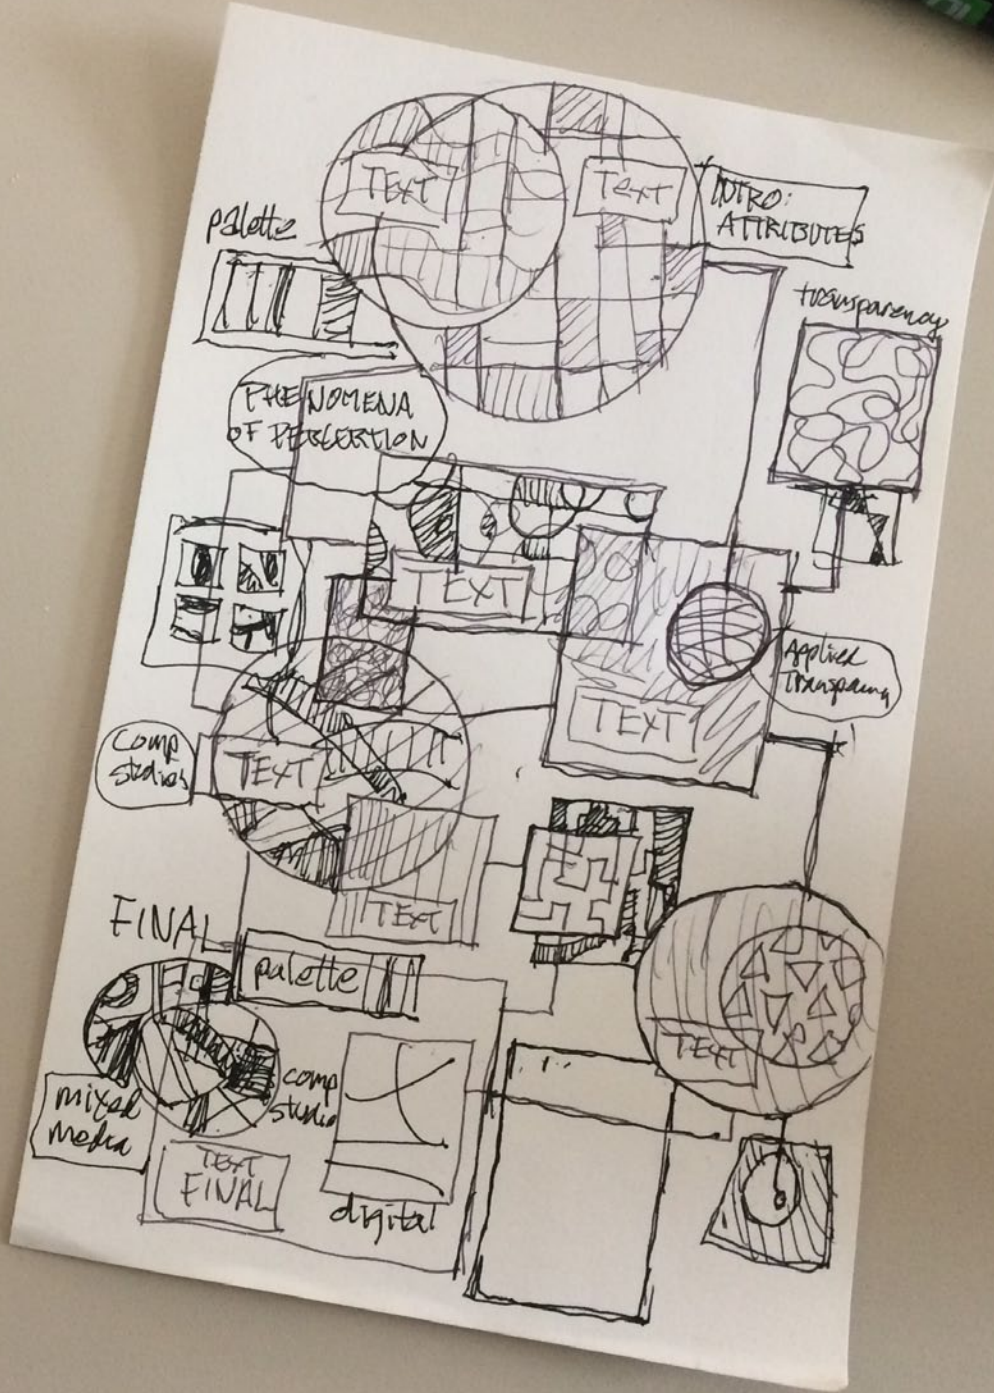 TEXT
TEXT
INTRO:
ATTRIBUTES
palette
transparency
PHENOMENA
OF PERCEPTION
TEXT
Applied
Transparency
TEXT
Comp
studies
TEXT
TEXT
FINAL
palette
TEXT
comp
studies
mixed
media
TEXT
FINAL
digital